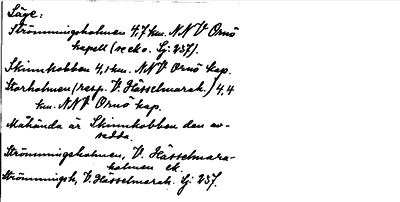 Läge:
Strömmingsholmen 4,7 km. NNV Ornö
kapell (se eko. Lj: 237).
Skinnkobben 4,1 km. NNV Ornö kap.
Storholmen (resp. V. Hässelmarak.) 4,4
km. NNV Ornö kap.
Måhända är Skinnkobben den av-
sedda.
Strömmingsholmen, V. Hässelmara-
holmen ek.
Strömmingsh, V. Hässelmarah. Lj 237.